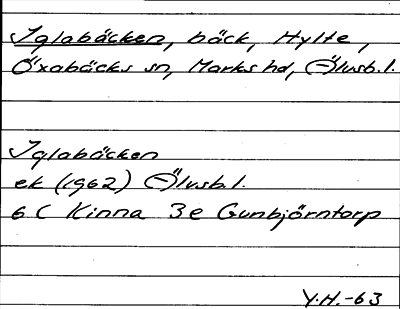 Iglabäcken, bäck, Hylte,
Öxabäcks sn, Marks hd, Älvsb.l.
Iglabäcken
ek (1962) Älvsb.l.
6 C Kinna 3e Gunbjörntorp
Y.H.-63